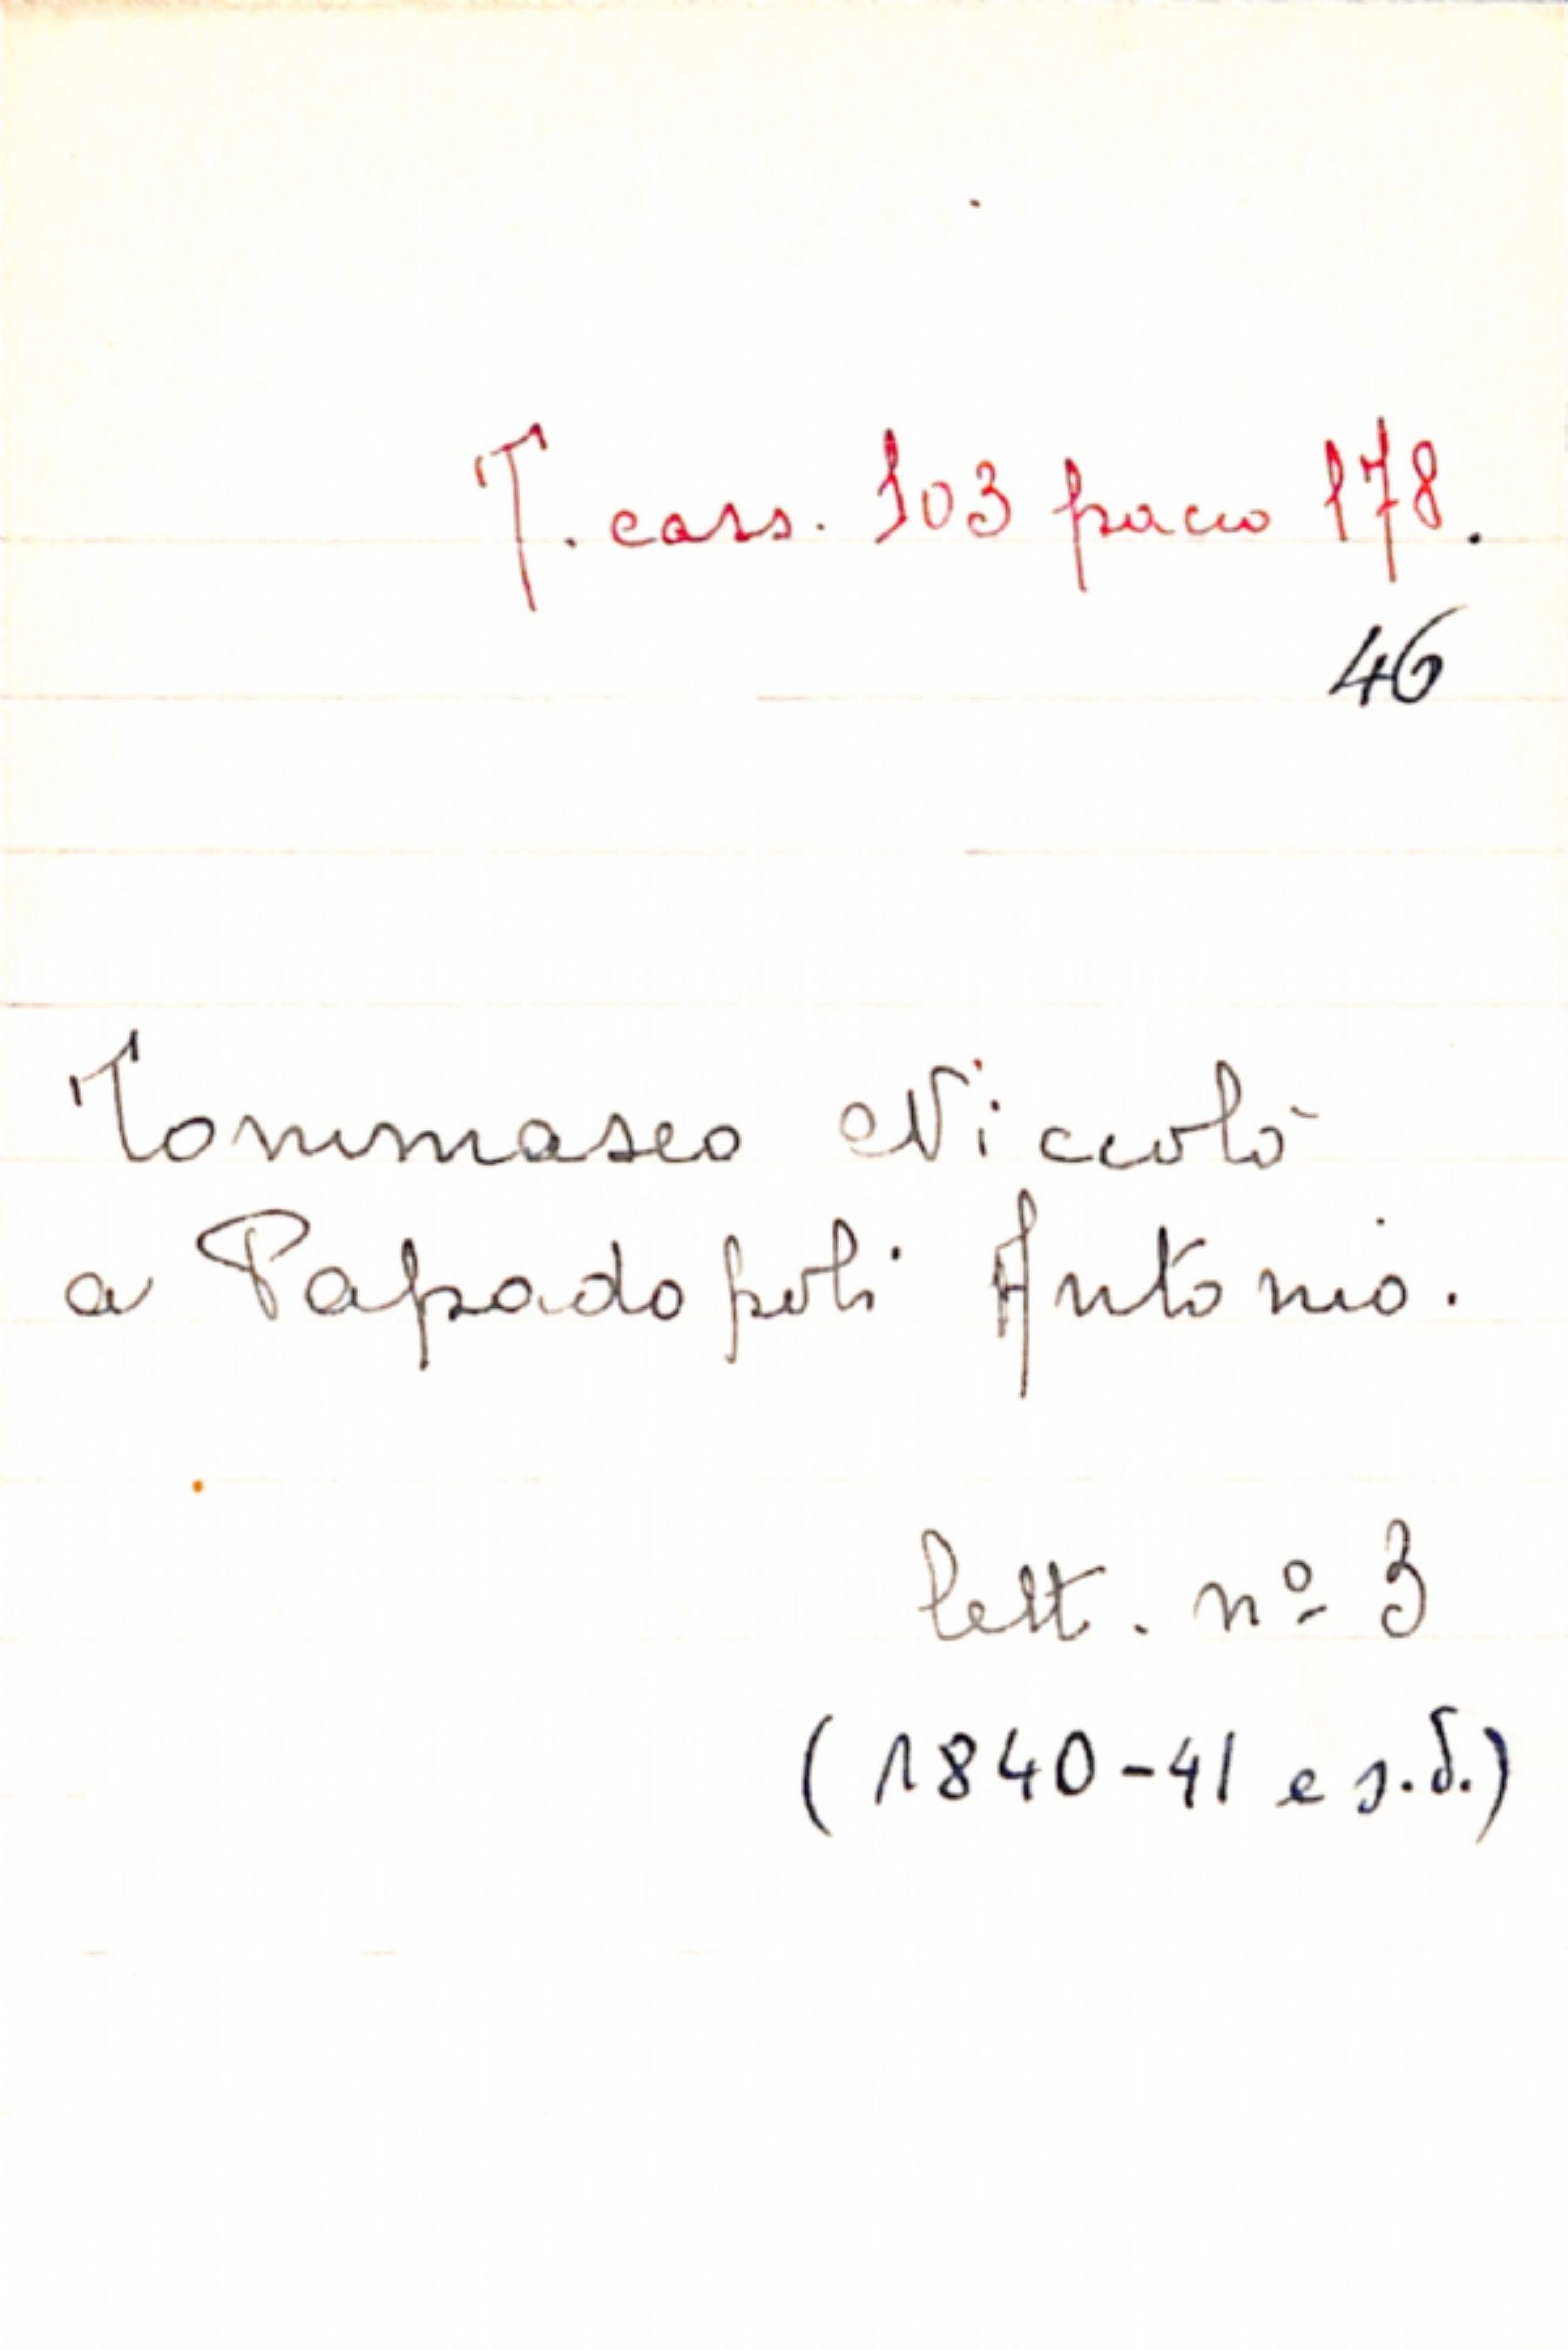 T. cass. 103 pacco 178.
46
Tommaseo Niccolò
a Papadopoli Antonio.
lett. nº 3
(1840-41 e s.d.)